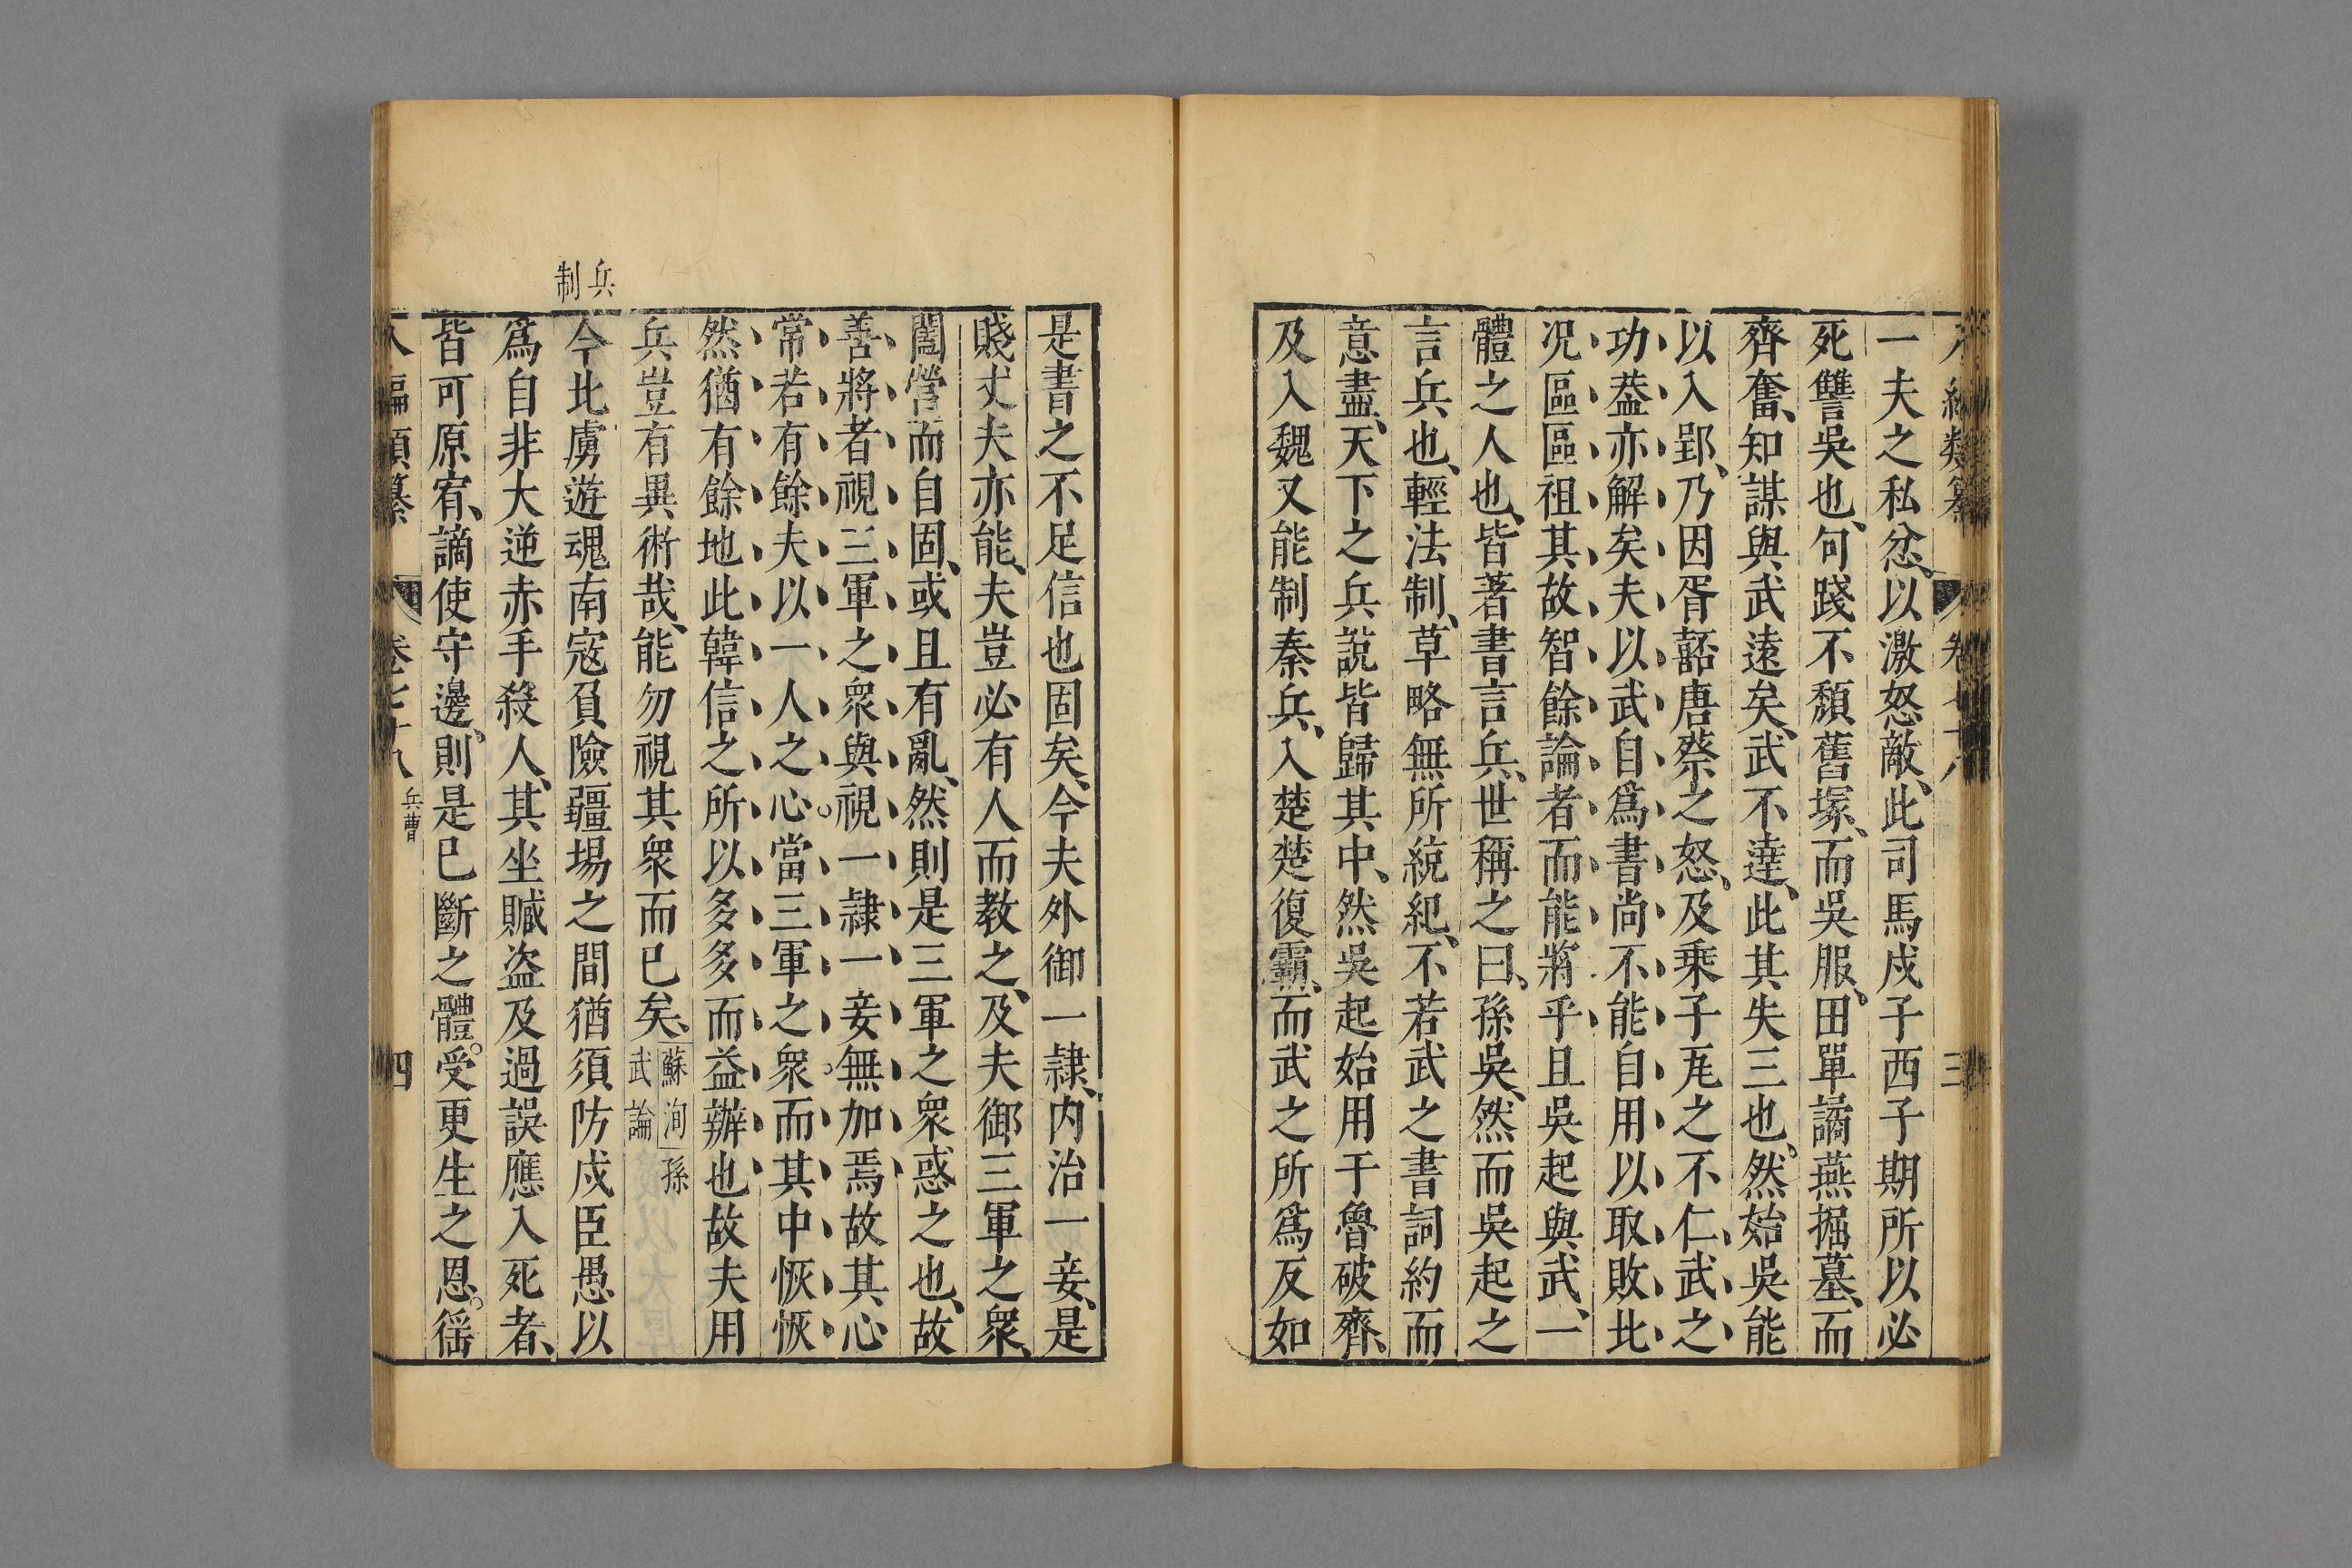 八編類纂 卷七十八 三
一夫之私忿、以激怒敵、此司馬戍子西子期所以必
死讐吳也、句踐不頹舊塚、而吳服、田單譎燕掘墓、而
齊奮、知謀與武遠矣、武不達、此其失三也、然始吳能
以入郢、乃因胥嚭唐蔡之怒、及乗子瓦之不仁、武之
功葢亦觧矣夫以武自爲書尚不能自用以取敗北
况區區祖其故智餘論者而能將乎且吳起與武、一
體之人也、皆著書言兵、世稱之曰、孫吳、然而吳起之
言兵也、輕法制、草略無所統紀、不若武之書詞約而
意盡、天下之兵說皆歸其中、然吳起始用于魯破齊、
及入魏又能制秦兵、入楚楚復霸、而武之所爲反如
是書之不足信也固矣、今夫外御一隷、内治一妾、是
賤丈夫亦能、夫豈必有人而教之、及夫御三軍之衆、
闔營而自固、或且有亂、然則是三軍之衆惑之也、故
善將者視三軍之衆與視一隷一妾無加焉故其心
常若有餘夫以一人之心。當三軍之衆。而其中恢恢
然猶有餘地此韓信之所以多多而益辦也故夫用
兵豈有異術哉、能勿視其衆而已矣、蘇洵孫武論
兵制
今北虜遊魂南寇負險疆場之間猶須防戍臣愚以
爲自非大逆赤手殺人、其坐贓盗及過誤應入死者、
皆可原宥、謫使守邊、則是已斷之體。受更生之恩。徭
八編類纂 卷七十八 兵曹 四